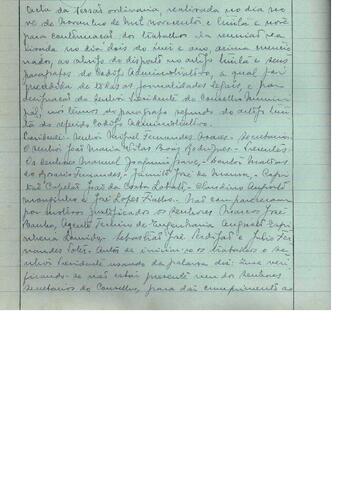 Acta da sessão ordinaria, realizada no dia no-
ve de Novembro de mil novecentos e trinta e nove
para continuação dos trabalhos da reunião rea-
lisada no dia dois do mez e ano, acima mencio-
nados, ao abrigo do disposto no artigo trinta e seus
paragrafos do Codigo Administrativo, a qual foi
precedida de todas as formalidades legais, e por
designação do senhor Presidente do Conselho Munici-
pal, nos termos do paragrafo segundo do artigo trin-
ta do referido Codigo Administrativo.
Presidente - Senhor Miguel Fernandes Soares - Secretario
O senhor José Maria Vilas Boas Rodrigues - Presentes:
Os senhores Manuel Joaquim - Santos Mattos
do Rosario Fernandes, - José de Moura, - Capi-
tão Capelão João da Costa - Claudino Augusto
e José Lopes - Não compareceram
por motivos justificados os senhores José
Agente Tecnico de Engenharia Augusto
- Sebastião José e Julio Fer-
nandes - Antes de iniciar-se os trabalhos o se-
nhor Presidente usando da palavra diz: que veri-
ficando-se não estar presente nem dos senhores
Secretarios do Conselho, para dar cumprimento ao